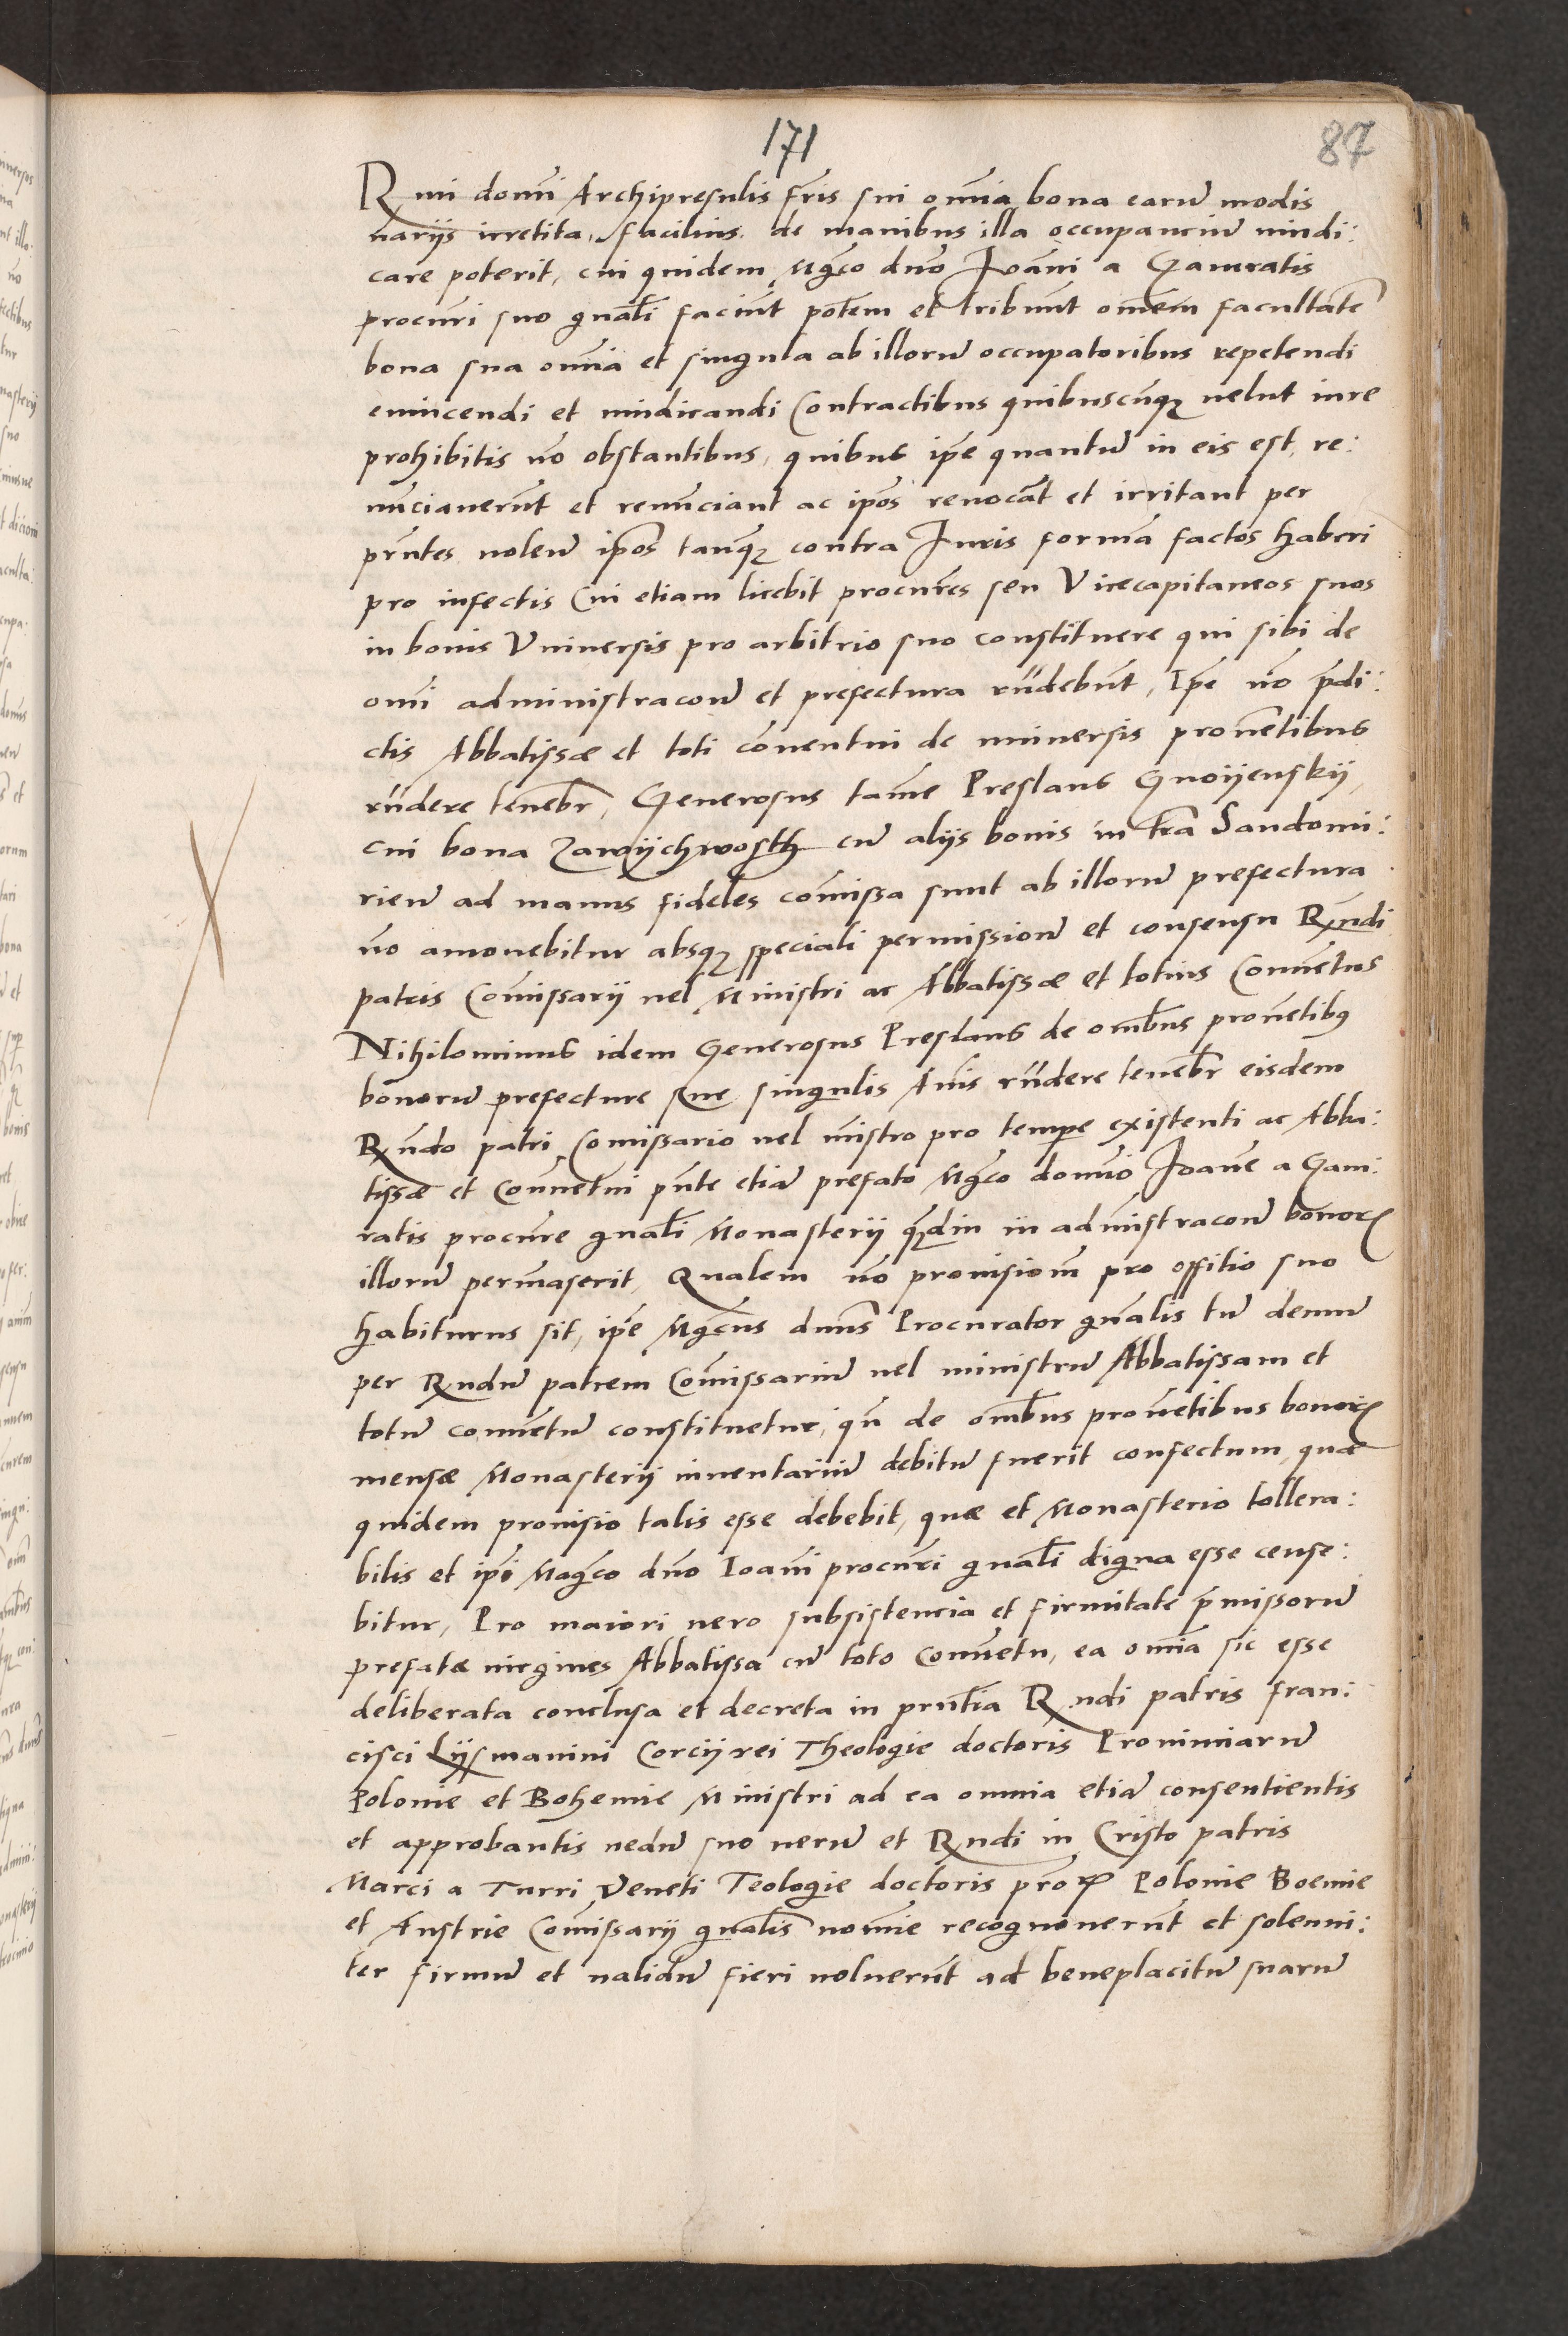 171
87
Rmi domi Archipresulis fris sui omia bona earu modis
variis irretita, facilius de manibus illa occupanciu vindi:
care poterit, cui quidem Mgco dno Ioani a Gamratis
procuri suo gnali faciut potem et tribuut omem facultate
bona sua omia et singula ab illoru occupatoribus repetendi
evincendi et vindicandi Contractibus quibuscuqz velut iure
prohibitis no obstantibus, quibus ipe quantu in eis est, re:
nuciaverut et renuciant ac ipos revocat et irritant per
prntes volen ipos tanqz contra Iuris forma factos haberi
pro infectis Cui etiam licebit procures seu Vicecapitaneos suos
in bonis Universis pro arbitrio suo constituere qui sibi de
omi administracoe et prefectura rndebut, Ipe vo pdi:
ctis Abbatissæ et toti coventui de universis provetibus
rndere tenebr, Generosus tame Preslaus Gnoijenskij,
cui bona Zawijchwosth cu alijs bonis in tra Sandomi:
rien ad manus fideles comissa sunt ab illoru prefectura
no amovebitur absqz speciali permissione et consensu Rndi
patris Comissarij vel Ministri ac Abbatissæ et totius Convetus
Nihilominus idem Generosus Preslaus de omibus provetibus
bonoru prefecture sue singulis Anis rndere tenebr eisdem
Rndo patri Comissario vel mistro pro tempe existenti ac Abba:
tissæ et Convetui pnte etia prefato Mgco domio Ioane a Gam:
ratis procure gnali Monasterij qdiu in admistracoe bonor
illoru permaserit, Qualem vo provisiom pro offitio suo
habiturus sit, ipe Mgcus dnus Procurator gnalis tu demu
per Rndu patrem Comissariu vel ministru Abbatissam et
totu convetu constituetur, qn de omibus provetibus bonor
mensæ Monasterij inventariu debitu fuerit confectum, quæ
quidem provisio talis esse debebit, quæ et Monasterio tollera:
bilis et ipi Magco dno Ioani procuri gnali digna esse cense:
bitur, Pro maiori vero subsistencia et firmitate pmissoru
prefatæ virgines Abbatissa cu toto Convetu, ea omia sic esse
deliberata conclusa et decreta in pruntia Rndi patris Fran:
cisci Lijsmanini Corcijrei Theologie doctoris Provinciaru
Polonie et Bohemie Ministri ad ea omnia etia consentientis
et approbantis nedu suo veru et Rndi in Cristo patris
Marci a Turri Veneti Teologie doctoris pror Polonie Boemie
et Austrie Comissarij gnalis nomie recognoverut et solenni:
ter firmu et validu fieri voluerut ad beneplacitu suaru